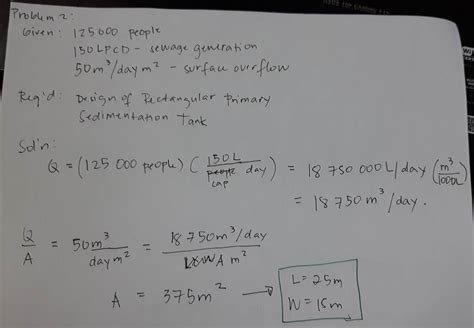 Problem 2:
Given: 125 000 people
150 LPCD - sewage generation
50 m³/day m² - surface overflow
Req'd: Design of Rectangular Primary
Sedimentation Tank
Sol'n:
Q = (125 000 people) ( 150L / cap day ) = 18 750 000 L/day ( m³ / 1000L )
= 18 750 m³/day.
Q / A = 50m³ / day m² = 18 750 m³/day / A m²
A = 375m² → L = 25m
W = 15m